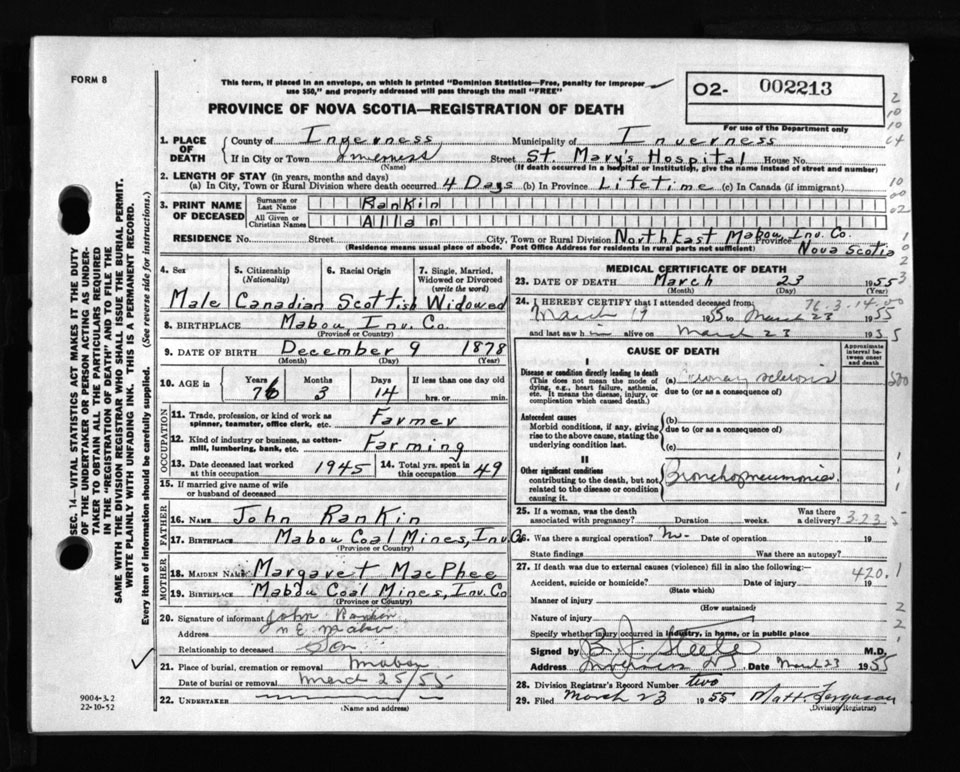 FORM 8
This form, if placed in an envelope, on which is printed "Dominion Statistics—Free, penalty for improper
use $50," and properly addressed will pass through the mail "FREE"
PROVINCE OF NOVA SCOTIA—REGISTRATION OF DEATH
O2- 002213
For use of the Department only
1. PLACE OF DEATH County of Inverness Municipality of Inverness
If in City or Town Inverness (Name) Street St. Mary's Hospital House No.
(If death occurred in a hospital or institution, give the name instead of street and number)
2. LENGTH OF STAY (in years, months and days)
(a) In City, Town or Rural Division where death occurred 4 Days (b) In Province Lifetime (c) In Canada (if immigrant)
3. PRINT NAME OF DECEASED Surname or Last Name Rankin
All Given or Christian Names Allan
RESIDENCE No. Street City, Town or Rural Division NorthEast Mabou Inv. Co. Province Nova Scotia
(Residence means usual place of abode. Post Office Address for residents in rural parts not sufficient)
4. Sex 5. Citizenship (Nationality) 6. Racial Origin 7. Single, Married, Widowed or Divorced (write the word)
Male Canadian Scottish Widowed
8. BIRTHPLACE Mabou Inv. Co.
(Province or Country)
9. DATE OF BIRTH December 9 1878
(Month) (Day) (Year)
10. AGE in Years 76 Months 3 Days 14 If less than one day old hrs. or min.
OCCUPATION
11. Trade, profession, or kind of work as spinner, teamster, office clerk, etc. Farmer
12. Kind of industry or business, as cotton-mill, lumbering, bank, etc. Farming
13. Date deceased last worked at this occupation 1945 14. Total yrs. spent in this occupation 49
15. If married give name of wife or husband of deceased
FATHER
16. NAME John Rankin
17. BIRTHPLACE Mabou Coal Mines, Inv. Co
(Province or Country)
MOTHER
18. MAIDEN NAME Margaret MacPhee
19. BIRTHPLACE Mabou Coal Mines, Inv. Co
(Province or Country)
20. Signature of informant John Rankin
Address N E Mabou
Relationship to deceased Son
21. Place of burial, cremation or removal Mabou
Date of burial or removal March 25/55
22. UNDERTAKER
(Name and address)
MEDICAL CERTIFICATE OF DEATH
23. DATE OF DEATH March 23 1955
(Month) (Day) (Year)
76.3.14.00
24. I HEREBY CERTIFY that I attended deceased from:
March 19 1955 to March 23 1955
and last saw h im alive on March 23 1955
CAUSE OF DEATH
Approximate interval between onset and death
I
Disease or condition directly leading to death
(This does not mean the mode of dying, e.g., heart failure, asthenia, etc. It means the disease, injury, or complication which caused death.)
(a) sclerosis
due to (or as a consequence of)
Antecedent causes
Morbid conditions, if any, giving rise to the above cause, stating the underlying condition last.
(b)
due to (or as a consequence of)
(c)
II
Other significant conditions
contributing to the death, but not related to the disease or condition causing it.
Bronchopneumonia
25. If a woman, was the death associated with pregnancy? Duration weeks. Was there a delivery? 323
26. Was there a surgical operation? No- Date of operation 19
State findings Was there an autopsy?
27. If death was due to external causes (violence) fill in also the following:—
420.1
Accident, suicide or homicide? Date of injury 19
(State which)
Manner of injury
(How sustained)
Nature of injury
Specify whether injury occurred in industry, in home, or in public place
Signed by B. J. Steele M.D.
Address Inverness NS Date March 23 1955
28. Division Registrar's Record Number two
29. Filed March 23 1955 Matt. Ferguson
(Division Registrar)
SEC. 14—VITAL STATISTICS ACT MAKES IT THE DUTY
OF THE UNDERTAKER OR PERSON ACTING AS UNDER-
TAKER TO OBTAIN ALL THE PARTICULARS REQUIRED
IN THE "REGISTRATION OF DEATH" AND TO FILE THE
SAME WITH THE DIVISION REGISTRAR WHO SHALL ISSUE THE BURIAL PERMIT.
WRITE PLAINLY WITH UNFADING INK. THIS IS A PERMANENT RECORD.
Every item of information should be carefully supplied. (See reverse side for instructions.)
9004-3.2
22-10-52